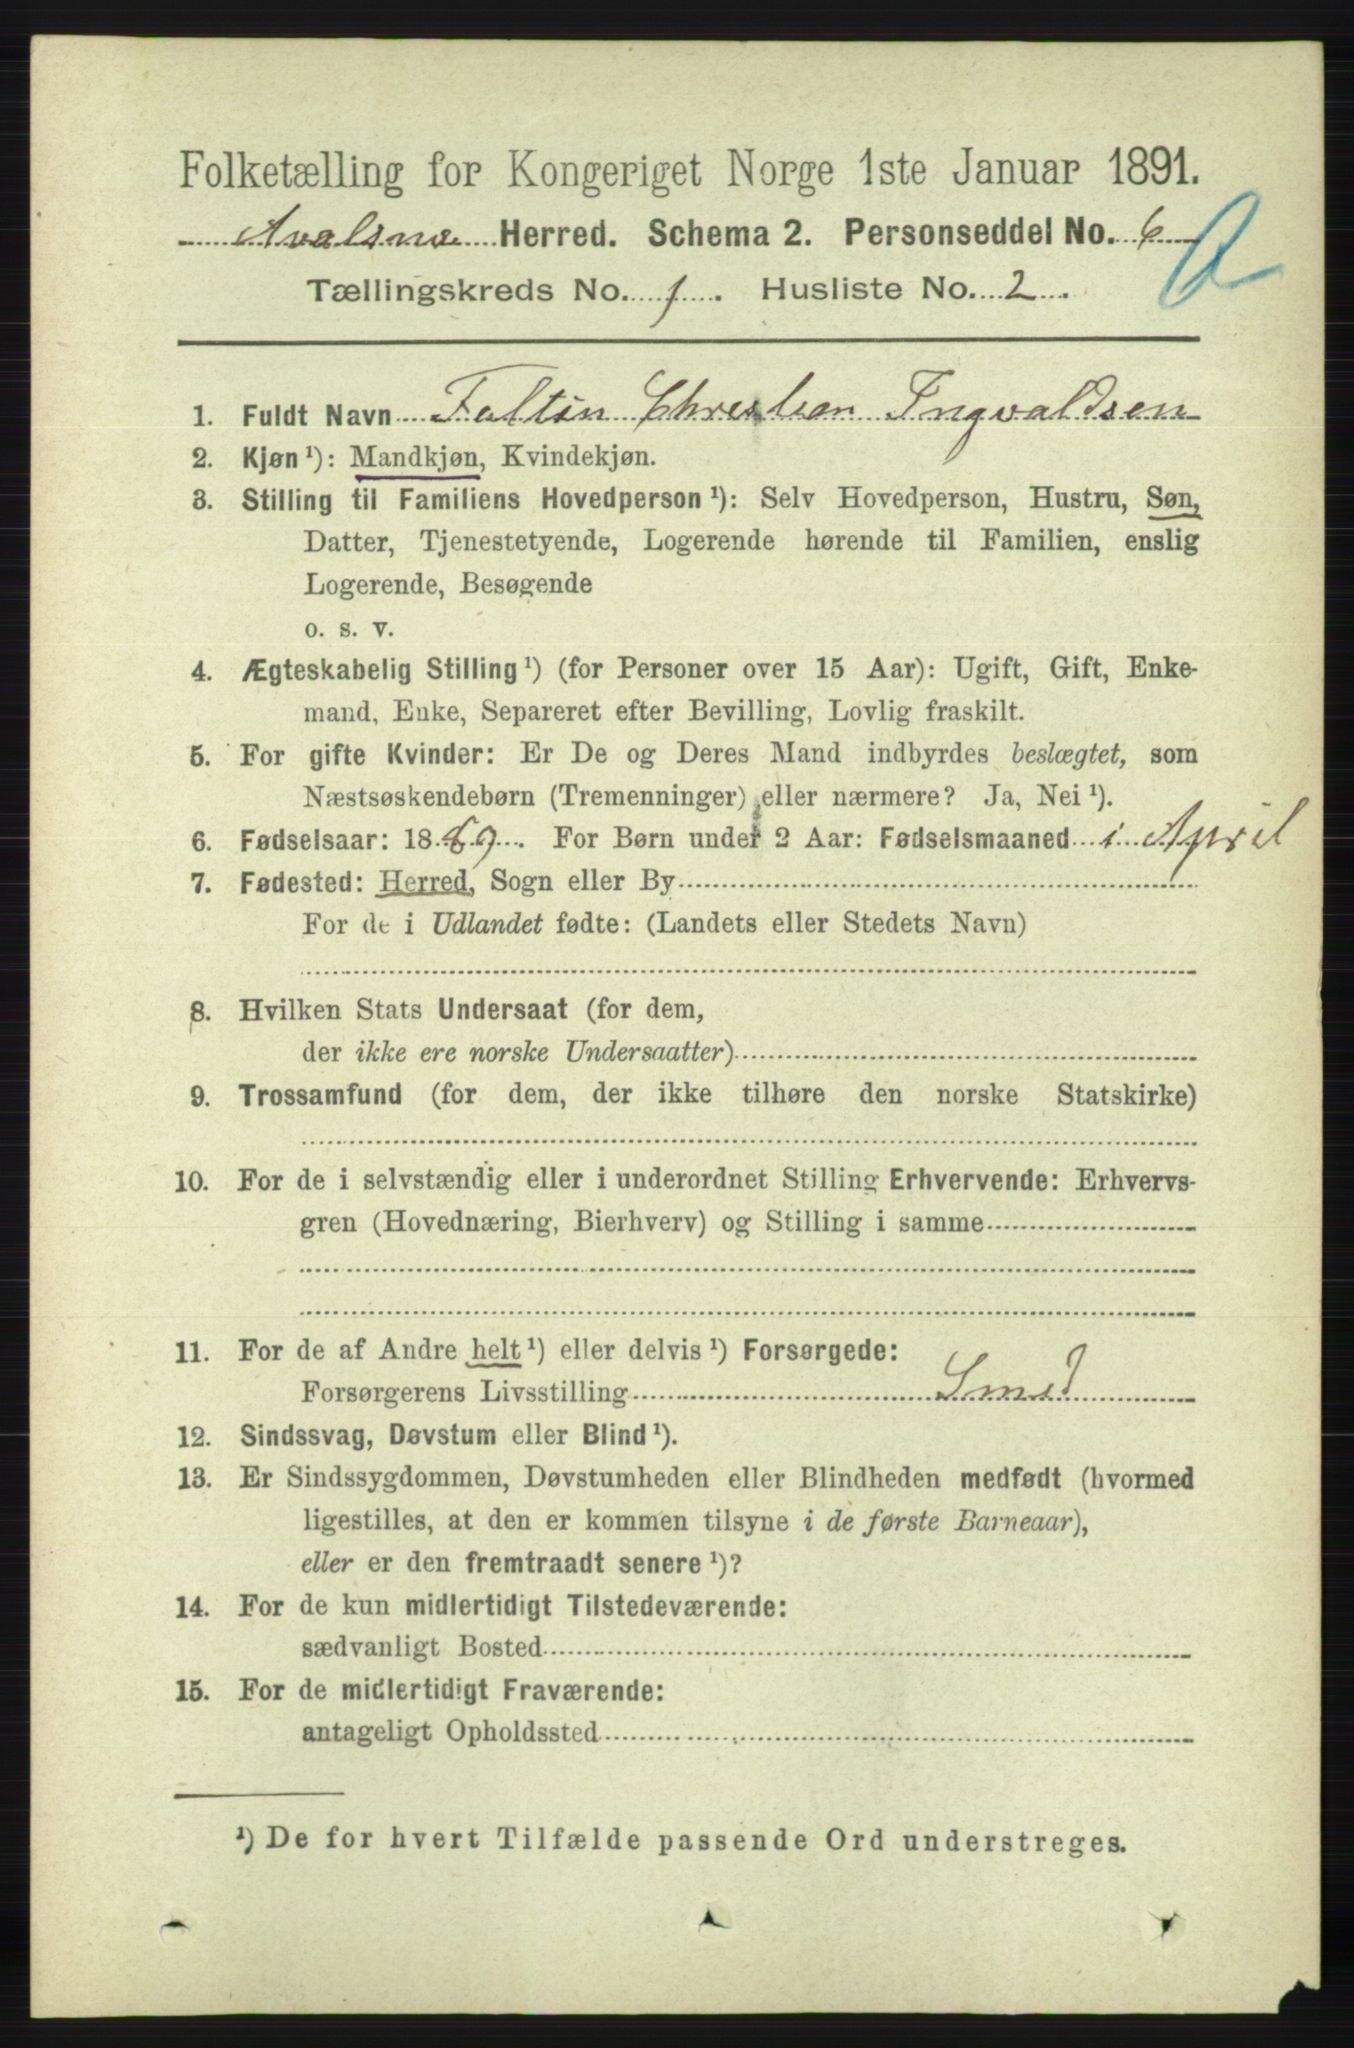 Folketælling for Kongeriget Norge 1ste Januar 1891.
Avalsnæs Herred. Schema 2. Personseddel No. 6
Tællingskreds No. 1. Husliste No. 2.
1. Fuldt Navn Faltin Christian Ingvaldsen
2. Kjøn ¹): Mandkjøn, Kvindekjøn.
3. Stilling til Familiens Hovedperson ¹): Selv Hovedperson, Hustru, Søn,
Datter, Tjenestetyende, Logerende hørende til Familien, enslig
Logerende, Besøgende
o. s. v.
4. Ægteskabelig Stilling ¹) (for Personer over 15 Aar): Ugift, Gift, Enke-
mand, Enke, Separeret efter Bevilling, Lovlig fraskilt.
5. For gifte Kvinder: Er De og Deres Mand indbyrdes beslægtet, som
Næstsøskendebørn (Tremenninger) eller nærmere? Ja, Nei ¹).
6. Fødselsaar: 1889. For Børn under 2 Aar: Fødselsmaaned i April
7. Fødested: Herred, Sogn eller By
For de i Udlandet fødte: (Landets eller Stedets Navn)
8. Hvilken Stats Undersaat (for dem,
der ikke ere norske Undersaatter)
9. Trossamfund (for dem, der ikke tilhøre den norske Statskirke)
10. For de i selvstændig eller i underordnet Stilling Erhvervende: Erhvervs-
gren (Hovednæring, Bierhverv) og Stilling i samme
11. For de af Andre helt ¹) eller delvis ¹) Forsørgede:
Forsørgerens Livsstilling Smed
12. Sindssvag, Døvstum eller Blind ¹).
13. Er Sindssygdommen, Døvstumheden eller Blindheden medfødt (hvormed
ligestilles, at den er kommen tilsyne i de første Barneaar),
eller er den fremtraadt senere ¹)?
14. For de kun midlertidigt Tilstedeværende:
sædvanligt Bosted
15. For de midlertidigt Fraværende:
antageligt Opholdssted
¹) De for hvert Tilfælde passende Ord understreges.